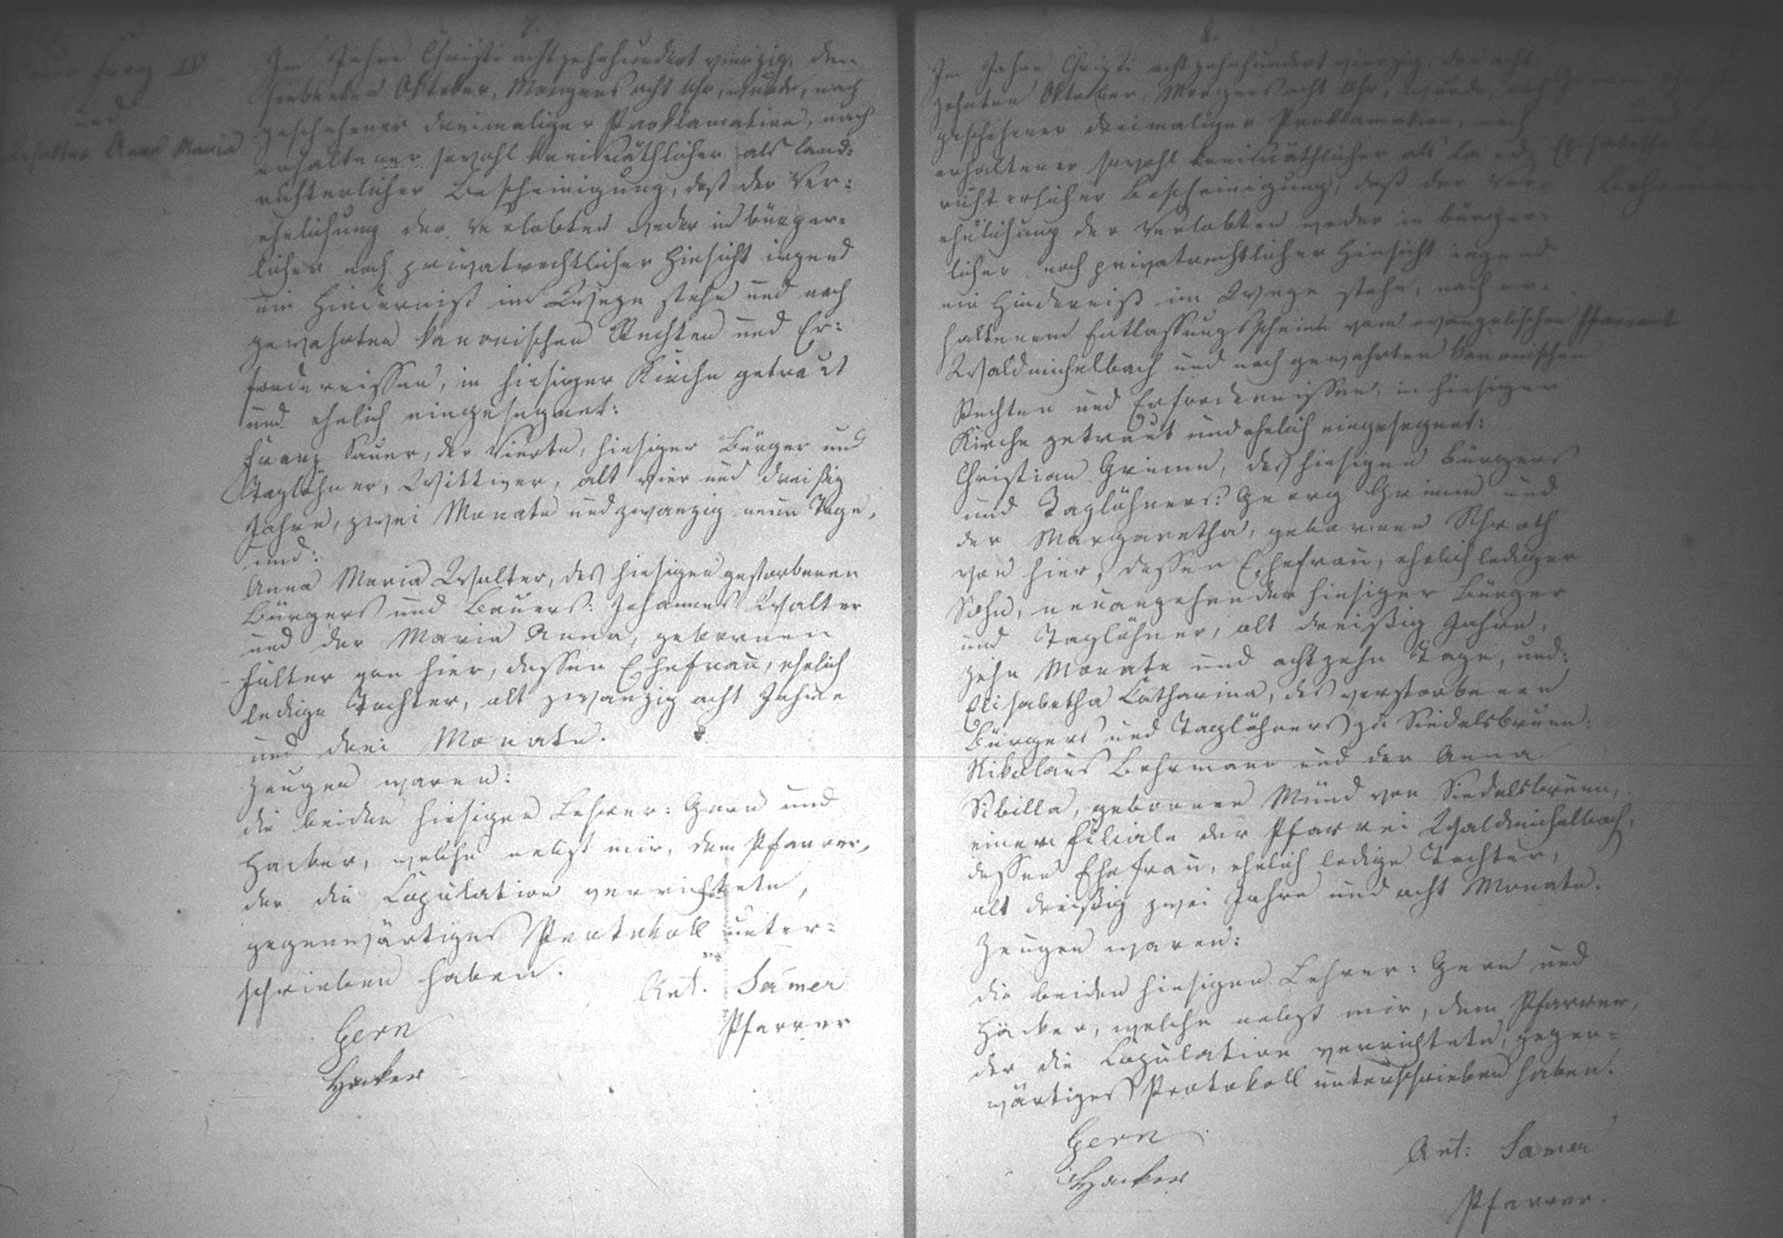 7.
Franz IV.
und
Walter Anna Maria
Im Jahre Christi achtzehnhundert vierzig, den
siebenten Oktober, Morgens acht Uhr, wurde, nach
geschehener dreimaliger Proklamation, nach
erhaltener sowohl kreisräthlicher als land-
richterlicher Bescheinigung, daß der Ver-
ehelichung der Verlobten weder in bürger-
licher noch privatrechtlicher Hinsicht irgend
ein Hinderniß im Wege stehe und nach
gewahrten kanonischen Rechten und Er-
fordernissen, in hiesiger Kirche getraut
und ehelich eingesegnet:
Franz Sauer, der Vierte, hiesiger Bürger und
Taglöhner, Wittwer, alt vier und dreißig
Jahre, zwei Monate und zwanzig neun Tage,
und:
Anna Maria Walter, des hiesigen gestorbenen
Bürgers und Bauers: Johannes Walter
und der Maria Anna, gebornen
Falter von hier, dessen Ehefrau, ehelich
ledige Tochter, alt zwanzig acht Jahre
und drei Monate.
Zeugen waren:
die beiden hiesigen Lehrer: Gern und
Hacker, welche nebst mir, dem Pfarrer,
der die Copulation verrichtete,
gegenwärtiges Protokoll unter-
schrieben haben.
Ant. Samer
Pfarrer
Gern
Hacker
8.
Im Jahre Christi achtzehnhundert vierzig, den acht
zehnten Oktober, Morgens acht Uhr, wurde, nach
geschehener dreimaliger Proklamation, nach
erhaltener sowohl kreisräthlicher als land-
richterlicher Bescheinigung, daß der Ver-
ehelichung der Verlobten weder in bürger-
licher noch privatrechtlicher Hinsicht irgend
ein Hinderniß im Wege stehe, nach er-
haltenem Entlassungsscheine vom evangelischen Pfarramt
Waldmichelbach und nach gewahrten kanonischen
Rechten und Erfordernissen, in hiesiger
Kirche getraut und ehelich eingesegnet:
Christian Grimm, des hiesigen Bürgers
und Taglöhners: Georg Grimm und
der Margaretha, gebornen Schroth
von hier, dessen Ehefrau, ehelich lediger
Sohn, neuangehender hiesiger Bürger
und Taglöhner, alt dreißig Jahre,
zehn Monate und achtzehn Tage, und:
Elisabetha Catharina, des verstorbenen
Bürgers und Taglöhners zu Siedelsbrunn:
Nikolaus Behrmann und der Anna
Sibilla, gebornen Münd von Siedelsbrunn,
einer Filiale der Pfarrei Waldmichelbach,
dessen Ehefrau, ehelich ledige Tochter,
alt dreißig zwei Jahre und acht Monate.
Zeugen waren:
die beiden hiesigen Lehrer: Gern und
Häcker, welche nebst mir, dem Pfarrer,
der die Copulation verrichtete, gegen-
wärtiges Protokoll unterschrieben haben.
Gern
Hacker
Ant: Samer
Pfarrer.